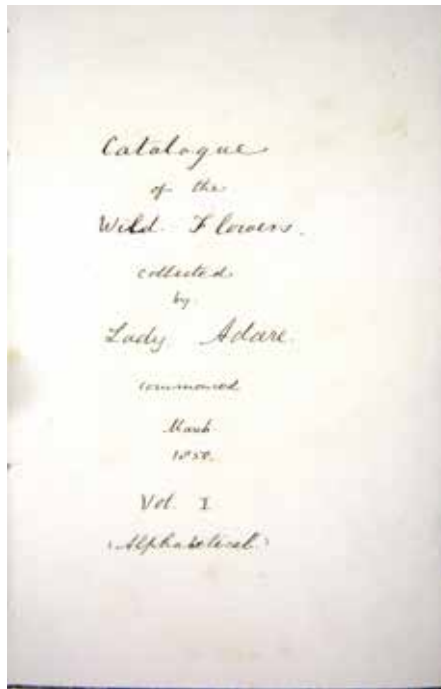 Catalogue
of the
Wild Flowers.
collected
by
Lady Adare.
commenced
March
1850.
Vol. I
(Alphabetical)